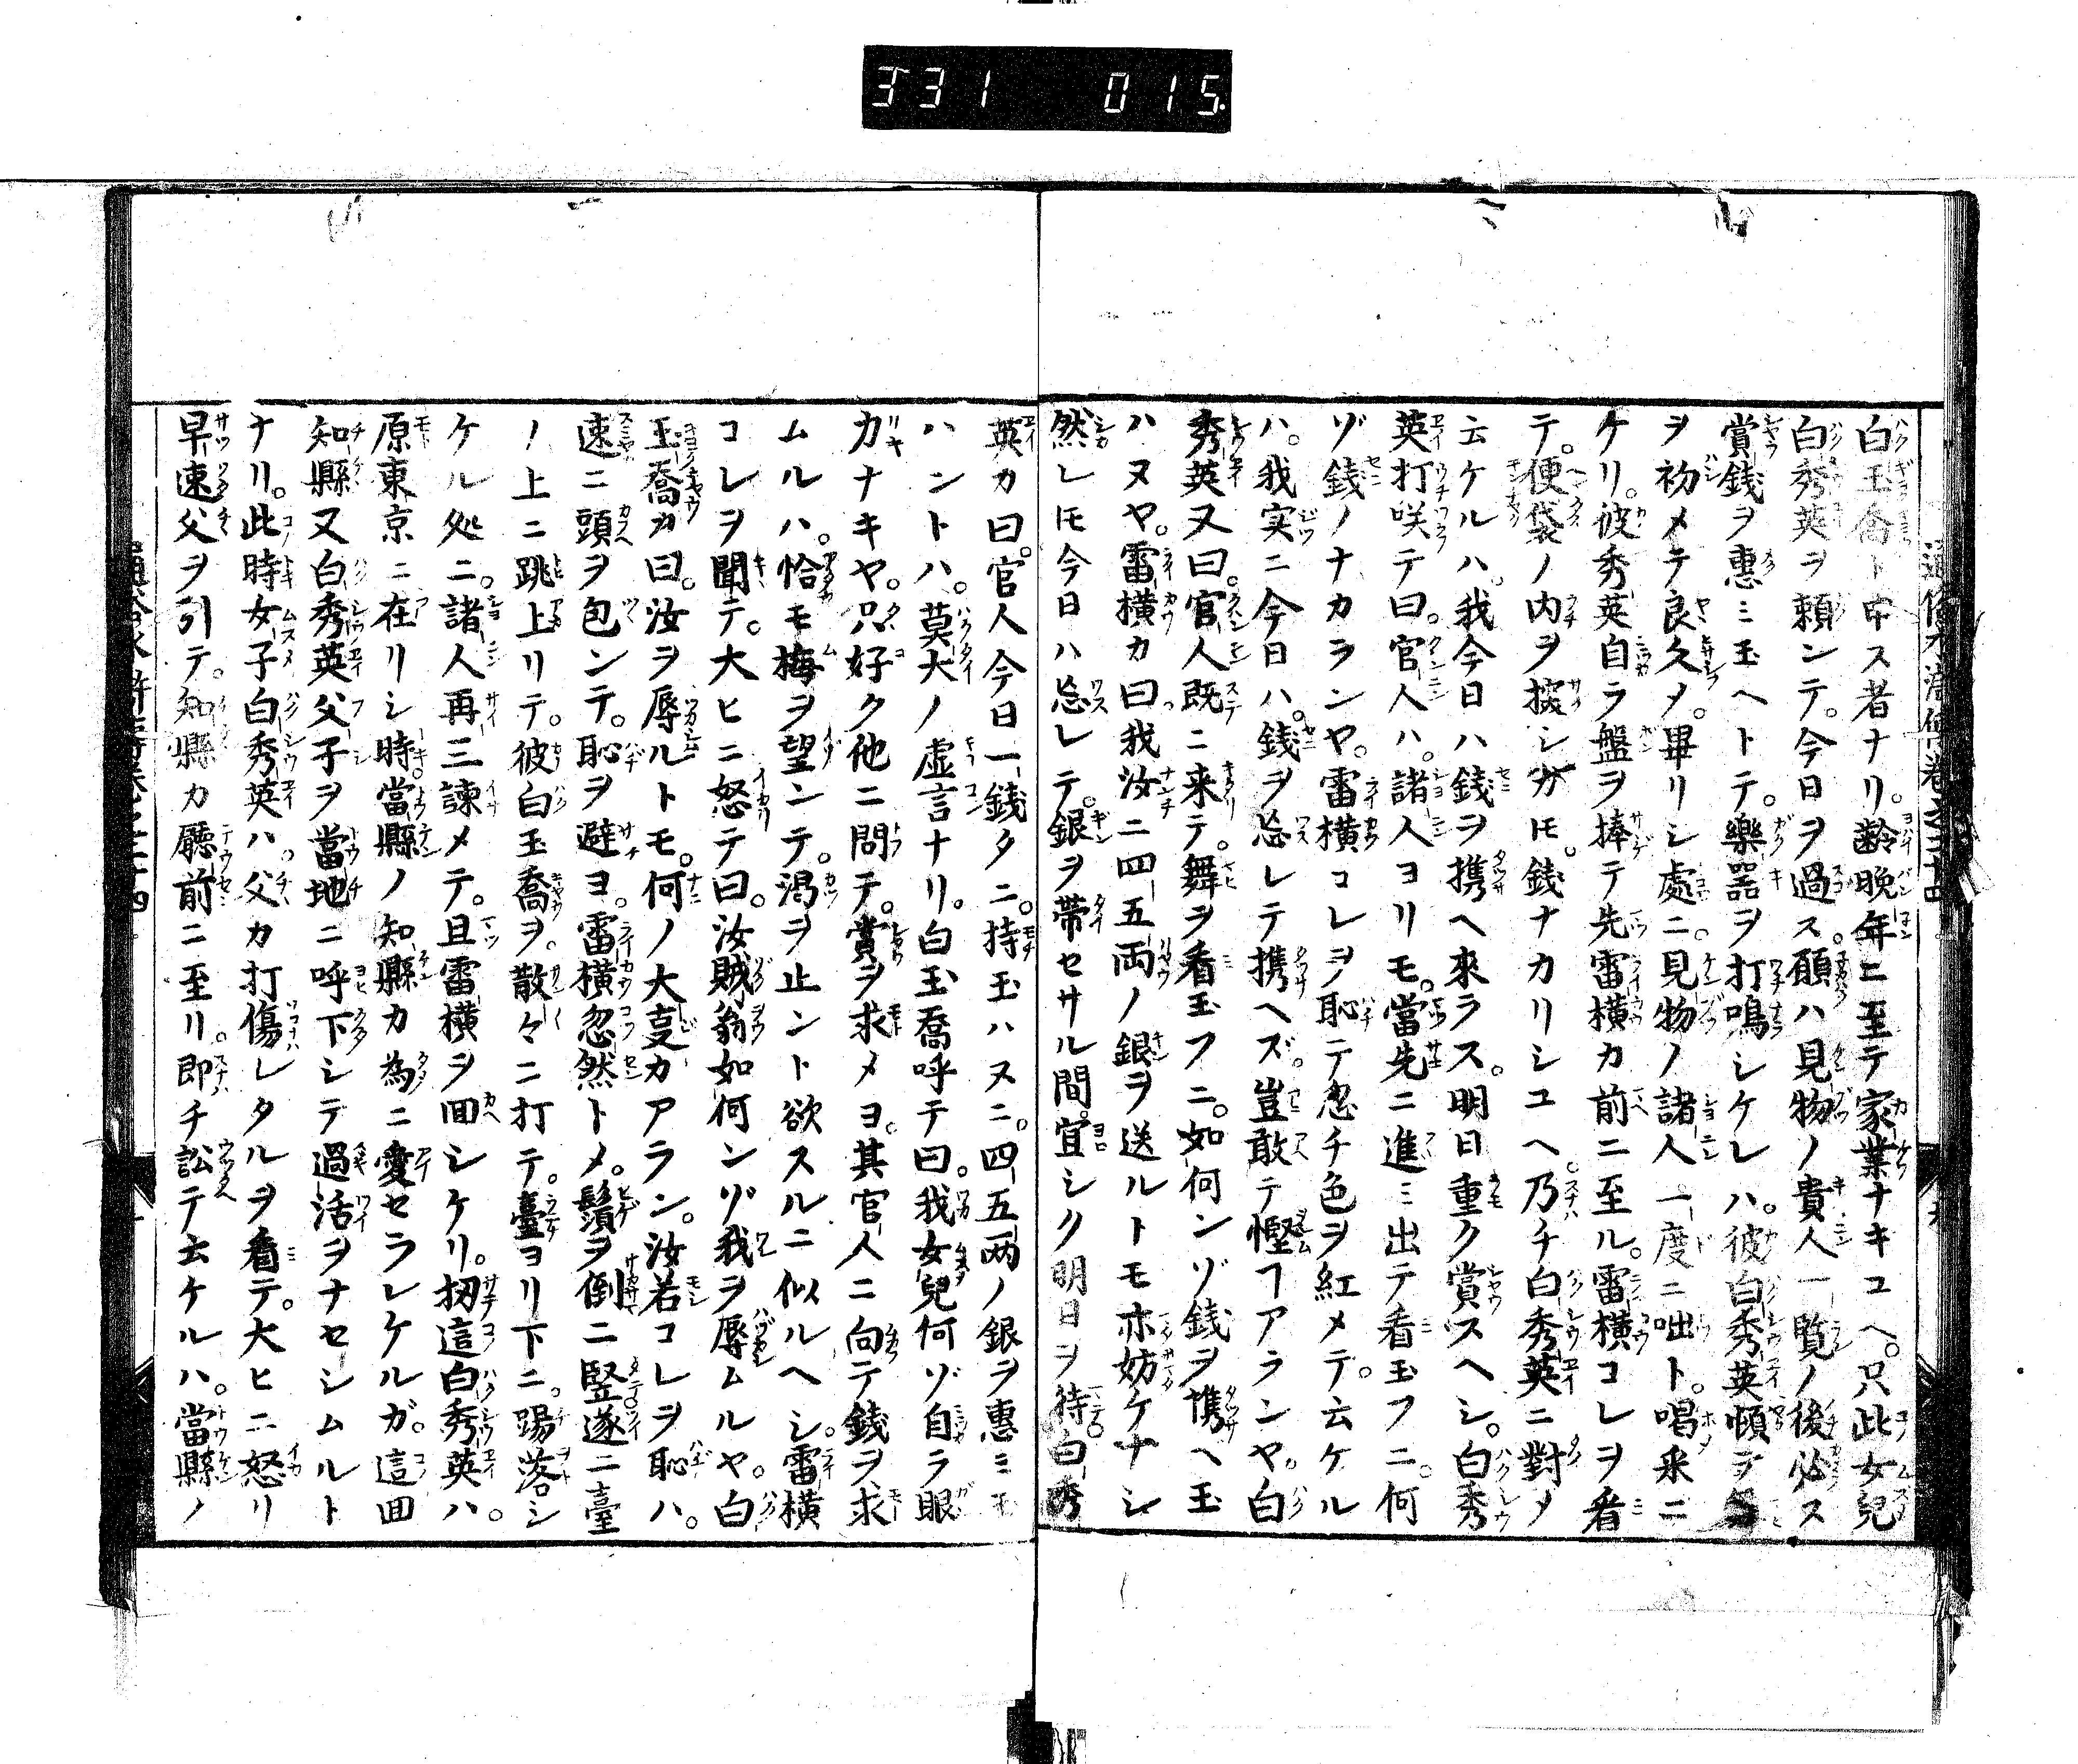 331 015
白玉喬ト申ス者ナリ。齢晩年ニ至テ家業ナキユヘ。只此女兒
白秀英ヲ頼ンテ。今日ヲ過ス。願ハ見物ノ貴人一覧ノ後必ス
賞銭ヲ惠ミ玉ヘトテ。樂器ヲ打鳴シケレハ。彼白秀英頓テ
ヲ初メテ良久メ。畢リシ處ニ。見物ノ諸人一度ニ咄ト。唱采ニ
ケリ。彼秀英自ラ盤ヲ捧テ先雷横カ前ニ至ル。雷横コレヲ看
テ。便袋ノ内ヲ探シカ𪜈。銭ナカリシユヘ。乃チ白秀英ニ對メ
云ケルハ。我今日ハ銭ヲ携ヘ來ラス。明日重ク賞スヘシ。白秀
英打咲テ曰。官人ハ。諸人ヨリモ。當先ニ進ミ出テ看玉フニ。何
ゾ銭ノナカランヤ。雷横コレヲ恥テ忽チ色ヲ紅メテ。云ケル
ハ。我実ニ今日ハ。銭ヲ忘レテ携ヘズ。豈敢テ慳ヿアランヤ。白
秀英又曰。官人既ニ来テ。舞ヲ看玉フニ。如何ンゾ銭ヲ携ヘ玉
ハヌヤ。雷横カ曰我汝ニ四五両ノ銀ヲ送ルトモ亦妨ケナシ
然レ𪜈今日ハ忘レテ。銀ヲ帯セサル間。宜シク明日ヲ待白秀
英カ曰。官人今日一銭タニ。持玉ハヌニ。四五両ノ銀ヲ惠ミ玉
ハントハ。莫大ノ虚言ナリ。白玉喬呼テ曰。我女兒何ゾ自ラ眼
力ナキヤ。只好ク他ニ問テ。賞ヲ求メヨ。其官人ニ向テ銭ヲ求
ムルハ。恰モ梅ヲ望ンテ。渇ヲ止ント欲スルニ似ルヘシ。雷横
コレヲ聞テ。大ヒニ怒テ曰。汝賊翁如何ンゾ我ヲ辱ムルヤ。白
玉喬カ曰。汝ヲ辱ルトモ。何ノ大㕝カアラン。汝若コレヲ恥ハ。
速ニ頭ヲ包ンテ。恥ヲ避ヨ。雷横忽然トメ。鬚ヲ倒ニ竪遂ニ臺
ノ上ニ跳上リテ。彼白玉喬ヲ。散々ニ打テ。臺ヨリ下ニ。踢落シ
ケル処ニ。諸人再三諫メテ。且雷横ヲ回シケリ。扨這白秀英ハ。
原東京ニ在リシ時。當縣ノ知縣カ為ニ愛セラレケルガ。這回
知縣又白秀英父子ヲ當地ニ呼下シテ過活ヲナセシムルト
ナリ。此時女子白秀英ハ。父カ打傷レタルヲ看テ。大ヒニ怒リ
早速父ヲ引テ。知縣カ廳前ニ至リ。即チ訟テ云ケルハ。當縣ノ